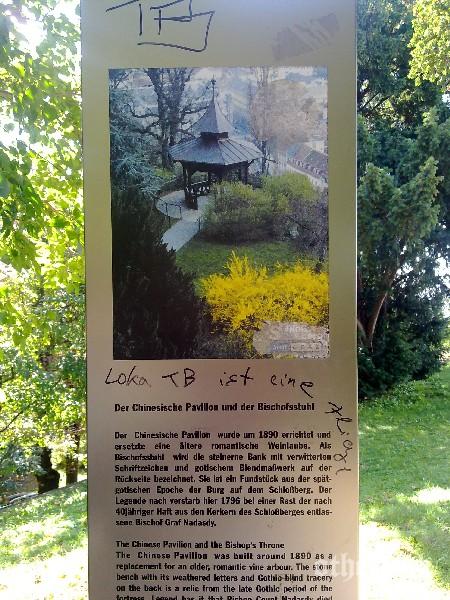 Loka TB ist eine
Der Chinesische Pavillon und der Bischofsstuhl
Der Chinesische Pavillon wurde um 1890 errichtet und
ersetzte eine ältere romantische Weinlaube. Als
Bischofsstuhl wird die steinerne Bank mit verwitterten
Schriftzeichen und gotischem Blendmaßwerk auf der
Rückseite bezeichnet. Sie ist ein Fundstück aus der spät-
gotischen Epoche der Burg auf dem Schloßberg. Der
Legende nach verstarb hier 1796 bei einer Rast der nach
40jähriger Haft aus den Kerkern des Schloßberges entlas-
sene Bischof Graf Nadasdy.
The Chinese Pavilion and the Bishop's Throne
The Chinese Pavilion was built around 1890 as a
replacement for an older, romantic vine arbour. The stone
bench with its weathered letters and Gothic blind tracery
on the back is a relic from the late Gothic period of the
fortress. Legend has it that Bishop Count Nadasdy died